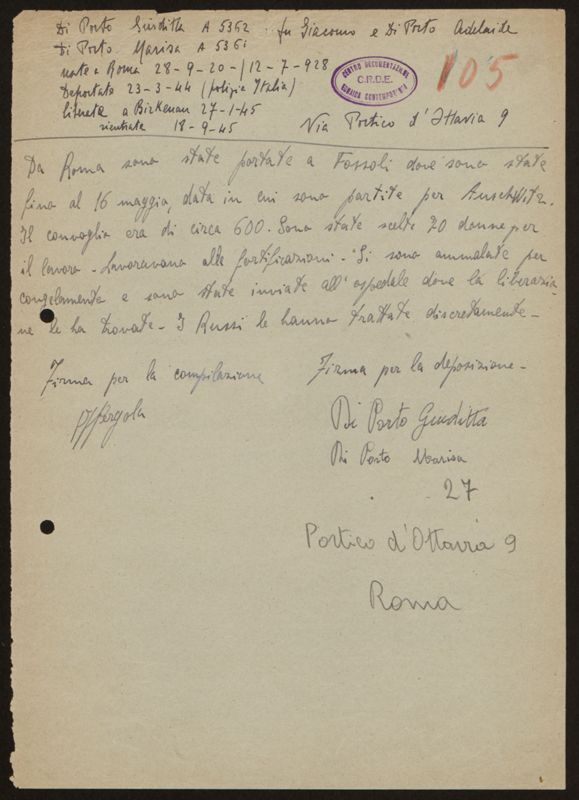 Di Porto Giuditta A 5362 fu Giacomo e Di Porto Adelaide
Di Porto Marisa A 5361
nate a Roma 28-9-20-/12-7-928
Deportate 23-3-44 (polizia Italia)
liberate a Birkenau 27-1-45
rientrate 18-9-45
Via Portico d'Ottavia 9
CENTRO DOCUMENTAZIONE
C.R.D.E.
EBRAICA CONTEMPORANEA
105
Da Roma sono state portate a Fossoli dove sono state
fino al 16 maggio, data in cui sono partite per Auschwitz.
Il convoglio era di circa 600. Sono state scelte 70 donne per
il lavoro - Lavoravano alle fortificazioni - Si sono ammalate per
congelamento e sono state inviate all'ospedale dove la liberazio-
ne le ha trovate - I Russi le hanno trattate discretamente -
Firma per la compilazione
Firma per la deposizione -
Di Porto Giuditta
Di Porto Marisa
27
Portico d'Ottavia 9
Roma